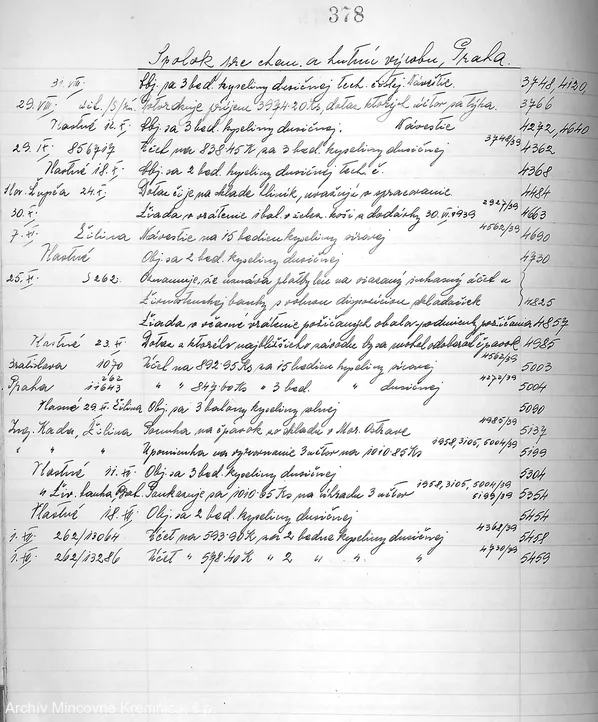 378
Spolok pre chem. a hutnú výrobu, Praha.
31. VIII. Obj. sa 3 bed. kyseliny dusičnej tech. čistej. Návestie. 3748, 4120,
29. VIII. potvrdzuje príjem 3974.20 Ks, dotaz ktorých účtov sa týka. 3766
Vlastné 12. X. Obj. sa 3 bed. kyseliny dusičnej. Návestie 4272, 4640
29. IX. 856717 Účet na 838.45 K za 3 bed. kyseliny dusičnej 3748/39 4362
Vlastné 18. X. Obj. sa 2 bed. kyseliny dusičnej tech. č. 4368
Slov. Ľupča 24. X. Dotaz či je na sklade 4484
30. X. Žiada o vrátenie 1 bal. v želez. koši z dodávky 30. VI. 1939 2927/39 4663
7. XI. Žilina Návestie na 15 bedien kyseliny sírovej 4562/39 4690
Vlastné Obj. sa 2 bed. kyseliny dusičnej 4730
25. XI. S 262. Oznamuje, že platby len na viazaný účet u
banky s voľnou dispozíciou 4825
Žiada o včasné vrátenie požičaných obalov-podmienky požičania 4857
Vlastné 23. XI. Dotaz z ktorého najbližšieho závodu by sa mohol odoberať čpavok 4985
Bratislava 1070 Účet na 892.95 Ks za 15 bedien kyseliny sírovej 4562/39 5003
Praha 262 11643 " " 847.60 Ks " 3 bed. " dusičnej 4272/39 5004
Vlastné 29. XI. Žilina Obj. sa 3 balóny kyseliny soľnej 5090
Ing. Kada, Žilina Ponuka na čpavok zo skladu v Mor. Ostrave 4985/39 5137
" " " Upomienka na vyrovnanie 3 účtov na 1010.85 Ks 1958, 3105, 5004/39 5199
Vlastné 11. XII. Obj. sa 3 bed. kyseliny dusičnej 5304
" Živ. banka Brat. Poukazuje sa 1010.85 Ks na úhradu 3 účtov 1958, 3105, 5004/39 5199/39 5354
Vlastné 18. XII. Obj. sa 2 bed. kyseliny dusičnej 5454
1. XII. 262/13064 Účet na 593.90 K, za 2 bedne kyseliny dusičnej 4368/39 5458
1. XII. 262/13286 Účet " 598.40 K " 2 " " " 4730/39 5459
Archív Mincovne Kremnica, š.p.